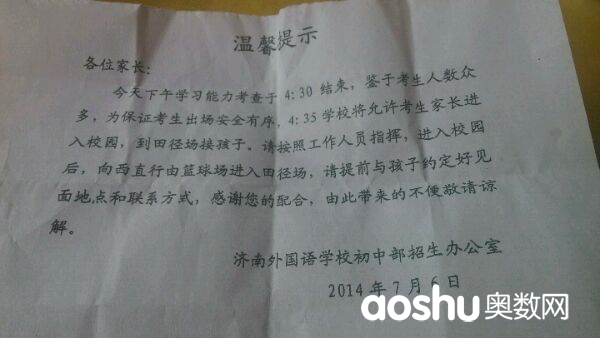 温馨提示
各位家长：
今天下午学习能力考查于 4:30 结束，鉴于考生人数众
多，为保证考生出场安全有序，4:35 学校将允许考生家长进
入校园，到田径场接孩子。请按照工作人员指挥，进入校园
后，向西直行由篮球场进入田径场，请提前与孩子约定好见
面地点和联系方式，感谢您的配合，由此带来的不便敬请谅
解。
济南外国语学校初中部招生办公室
2014 年 7 月 6 日
aoshu奥数网